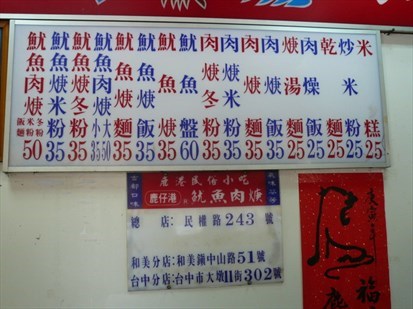 魷魚肉焿 飯麵米粉冬粉 50
魷魚焿米粉 35
魷魚焿冬粉 35
魷魚焿 小大 35 50
魷魚焿麵 35
魷魚焿飯 35
魷魚焿 35
魷魚盤 60
肉焿冬粉 35
肉焿米粉 35
肉焿麵 35
肉焿飯 35
焿湯麵 25
肉燥飯 25
乾麵 25
炒米粉 25
米糕 25
鹿港民俗小吃
鹿仔港 魷魚肉焿
總 店：民權路243號
和美分店：和美鎮中山路51號
台中分店：台中市大墩11街302號
福
鹿